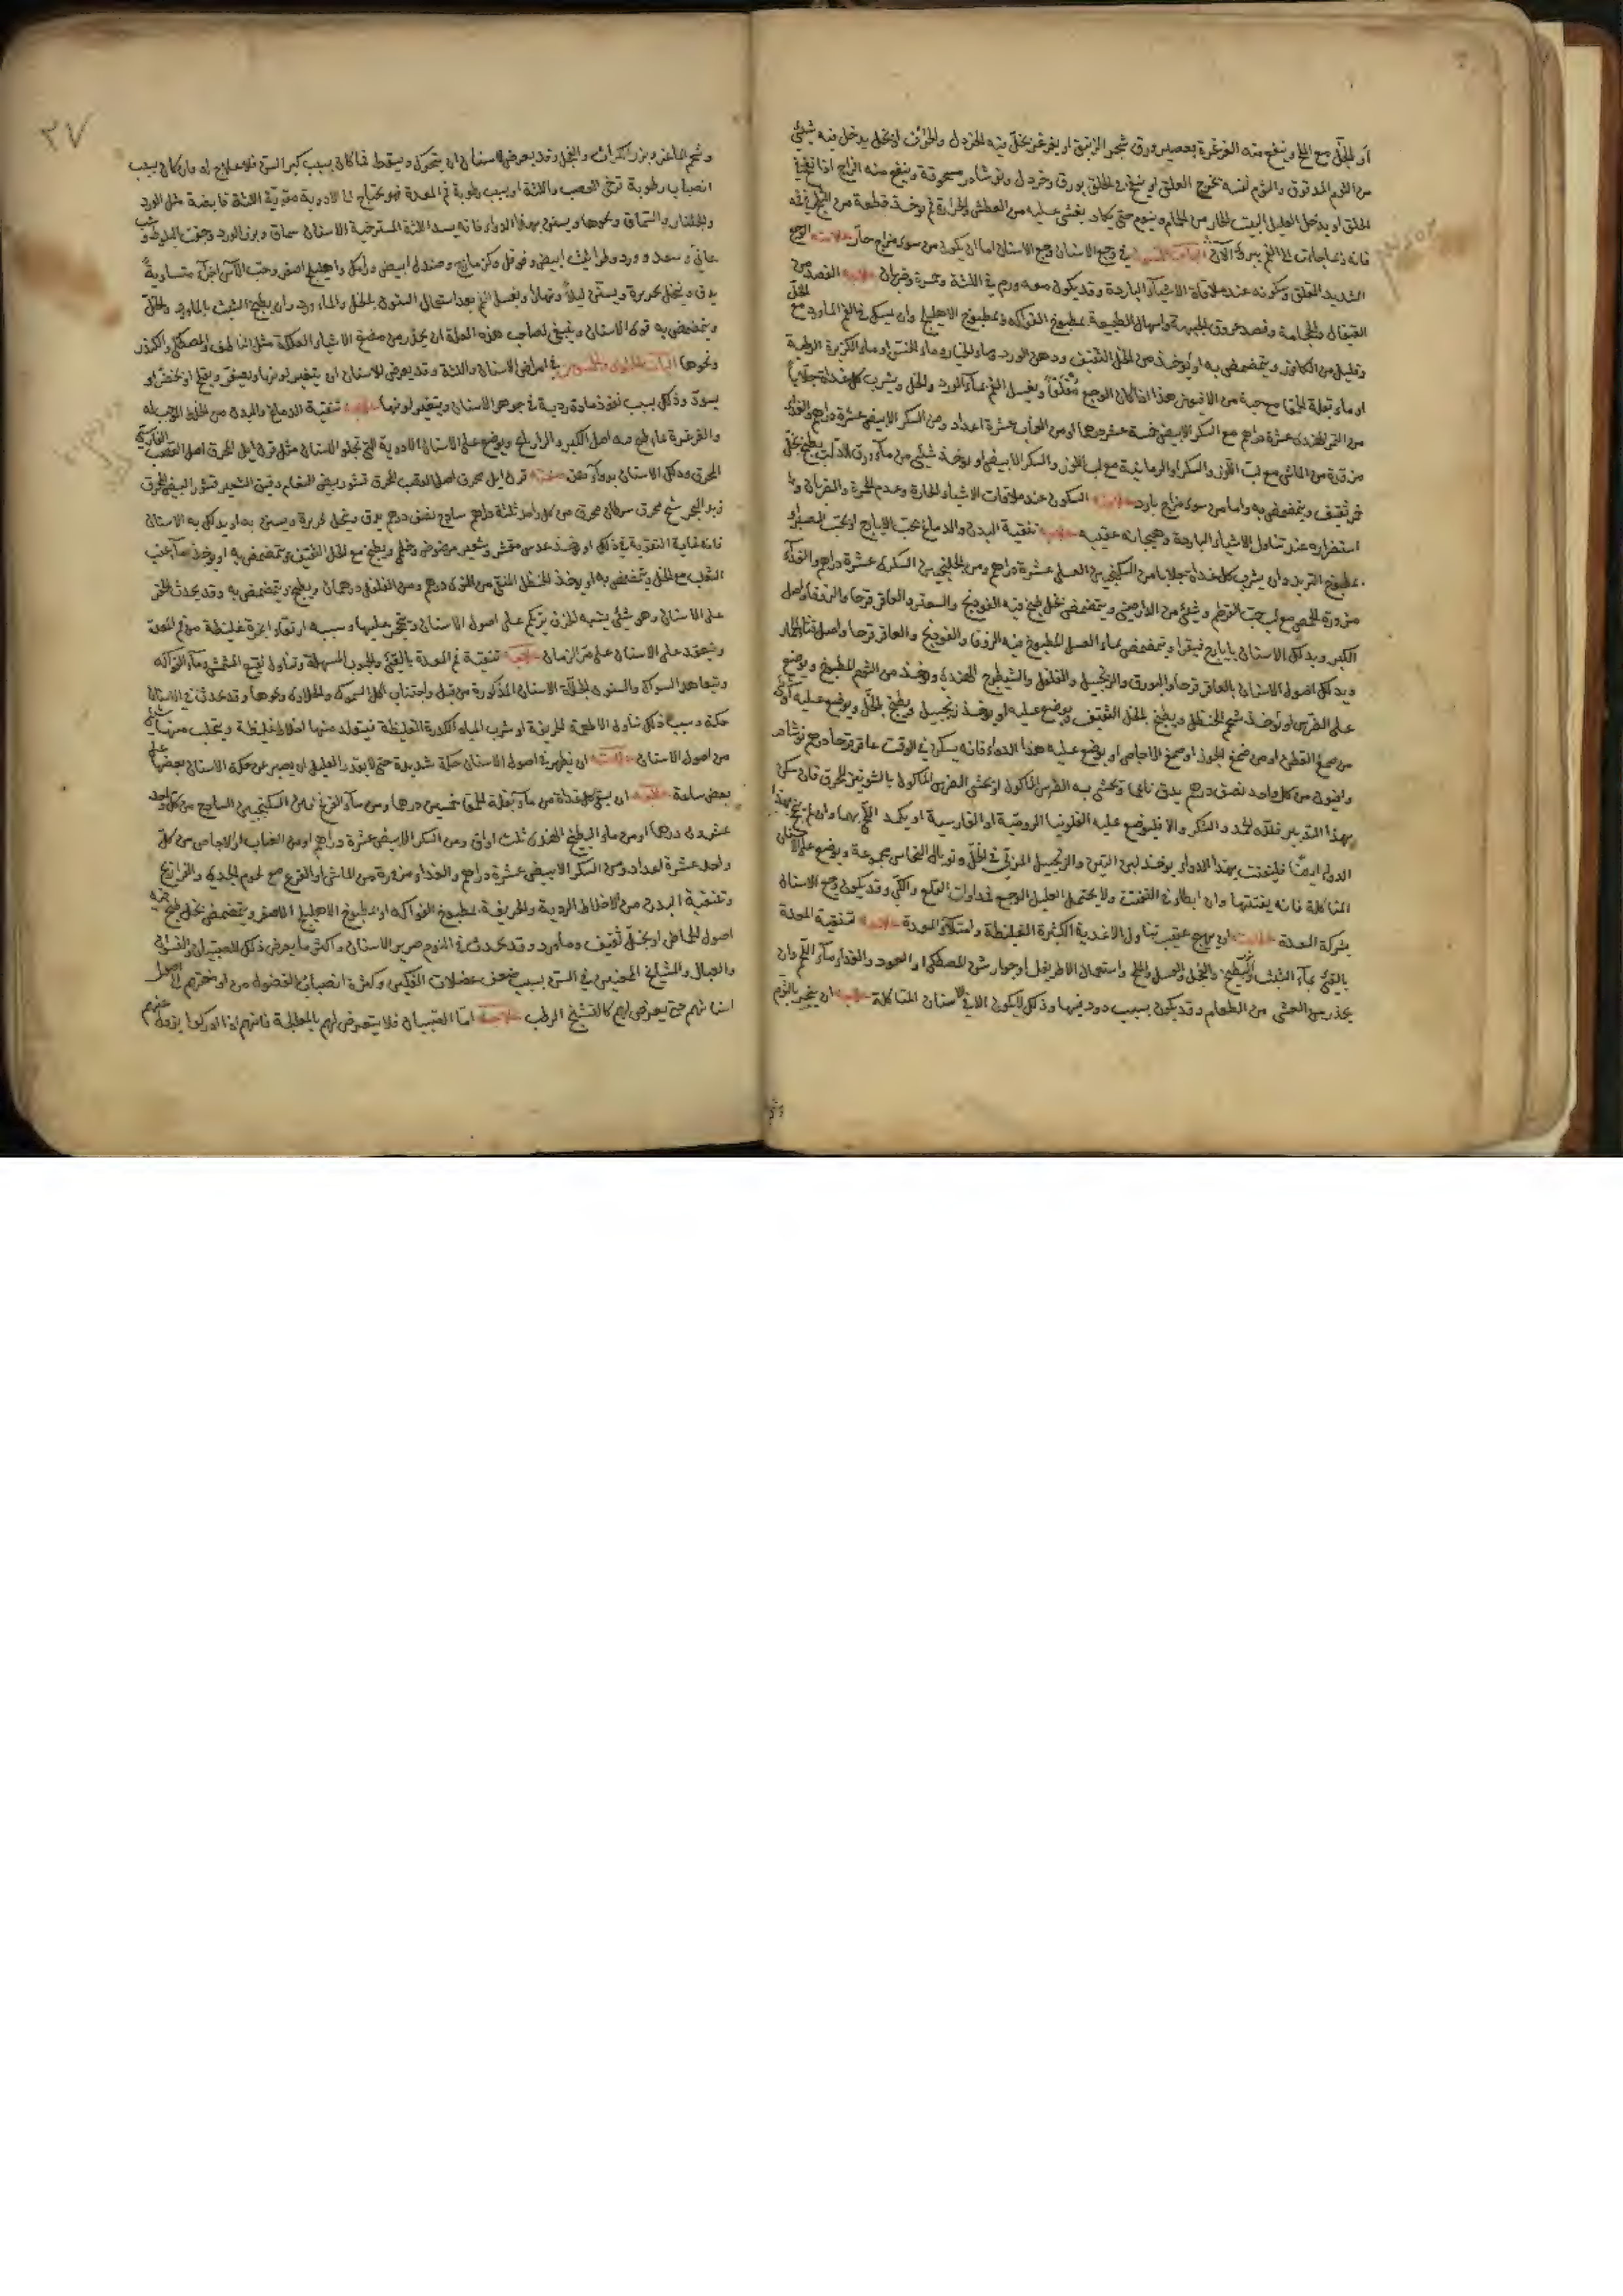 او الخل مع الملح وينفع منه الغرغرة بعصير ورق شجر او يغرغر بخل فيه الخردل او بخل يدخل فيه شيئ
من الثوم المدقوق والثوم نفسه يخرج العلق او ينفخ في الحلق بورق وخردل ونوشادر مسحوقة وينفع منه الزاج اذا نفخ في
الحلق او يدخل العليل البيت الحار من الحمام وينوم حتى يكاد يغشى عليه من العطش والحرارة ثم يوخذ قطعة من الثلج في فمه
فانه جاءت الى الفم ببرد الآن الباب في وجع الاسنان وجع الاسنان اما ان يكون من سوء مزاج حار علامته الوجع
الشديد المقلق وسكونه عند ملاقاة الاشياء الباردة وقد يكون معه ورم في اللثة وحمرة وضربان علاجه الفصد من
القيفال والحجامة وفصد عروق الجبهة واسهال الطبيعة بمطبوخ الفواكه ومطبوخ الاهليلج وان يمسك في الفم الماورد مع الخل
وقليل من الكافور ويتمضمض به او يوخذ من الخل الثقيف ودهن الورد وماء الخيار وماء الخس او ماء الكزبرة الرطبة
او ماء بقلة الحمقا مع حبة من الافيون هذا اذا كان الوجع مقلقا ويغسل الفم بماء الورد والخل ويشرب كل غداة جلابا
من التمر الهندي عشرة دراهم مع السكر الابيض خمسة عشر درهما او من العناب عشرة اعداد ومن السكر الابيض عشرة دراهم والغذاء
مزورة من الماش مع لب اللوز والسكر او الرمانية مع لب اللوز والسكر الابيض او يوخذ شيئ من ماء ورق الدلب يطبخ بخل
خمر ثقيف ويتمضمض به واما من سوء مزاج بارد علامته السكون عند ملاقات الاشياء الحارة وعدم الحمرة والضربان
استضراره عند تناول الاشياء الباردة وهيجانه عقيبه علاجه تنقية البدن والدماغ بحب الايارج او بحب الصبر او
بمطبوخ التربد وان يشرب كل غداة جلابا من السكنجبين العسلى عشرة دراهم ومن الجلنجبين السكرى عشرة دراهم والغذاء
مزورة الحمص مع لب حب القرطم وشيئ من الدارصيني ويتمضمض بخل طبخ فيه الفودنج والسعتر والعاقر قرحا والزوفا واصل
الكبر ويدلك الاسنان بايارج فيقرا ويتمضمض بماء العسل المطبوخ فيه الزوفا والفودنج والعاقر قرحا واصل
ويدلك اصول الاسنان بالعاقر قرحا والبورق والزنجبيل والفلفل والشيطرج الهندي ويوخذ من الثوم المطبوخ ويوضع
على الضرس او يوخذ شحم الحنظل ويطبخ بالخل الثقيف ويوضع عليه او يوخذ زنجبيل ويطبخ بالخل ويوضع عليه
من صمغ القطران او من صمغ الجوز او صمغ الاجاص او يوضع عليه هذا الدواء فانه يسكن في الوقت عاقر قرحا درهم نوشادر
وافيون من كل واحد نصف درهم يدق ناعما ويحشى به الضرس الماكول او يحشى الضرس الماكول بالشونيز المحرق فان سكن
بهذا التدبير فلله الحمد والشكر والا فليوضع عليه الفلونيا الرومية او الفارسية او يكمد وان لم ينجح بهذا
الدواء ايضا فليفتت بهذا الدواء يوخذ لبن التين والزنجبيل المربى في الخل وتوبال النحاس مجموعة ويوضع على الاسنان
المتاكلة فانه يفتتها وان ابطاء في التفتت ولا يحتمل العليل الوجع فداوات القلع والكي وقد يكون وجع الاسنان
بشركة المعدة علامته ان يهيج عقيب تناول الاغدية الكثيرة الغليظة وامتلاء المعدة علاجه تنقية المعدة
بالقيئ بماء الشبث والبطيخ والفجل والعسل والملح واستعمال الاطريفل او جوارش المصطكى او العود والغذاء ماء اللحم وان
يحذر من العشى من الطعام وقد يكون بسبب دود فيها وذلك لا يكون الا في الاسنان المتاكلة علاجه ان يتبخر بالثوم
٣٧
وشحم الماعز وبزر الكراث والبنج وقد يعرض للاسنان ان يتحرك ويسقط فما كان بسبب كبر السن فلا علاج له وما كان بسبب
انصباب رطوبة ترخى العصب واللثة او بسبب رطوبة فم المعدة فهو يحتاج الى الادوية مقوية اللثة قابضة مثل الورد
والجلنار والسماق ونحوها ويستن بهذا الدواء فانه يسد اللثة المسترخية الاسنان سماق وبزر الورد وجفت البلوط وشب
يماني وسعد وورد وطراثيث ابيض وفوفل وكزمازج وصندل ابيض ورامك واهليلج اصفر وحب الآس اجزاء متساوية
يدق وينخل بحريرة ويستن ليلا ونهارا ويغسل الفم بعد استعمال السنون بالخل والماء ورد وان يطبخ الشب بالماورد والخل
ويتمضمض به قوى الاسنان وينبغي لصاحب هذه العلة ان يحذر من مضغ الاشياء العلكة مثل الناطف والمصطكى والكندر
ونحوها الباب الحادي والخمسون في امراض الاسنان واللثة وقد يعرض للاسنان ان يتغير لونها ويصفر ويقلح او يخضر او
يسود وذلك بسبب نفوذ مادة ردية في جوهر الاسنان ويتغير لونها علاجه تنقية الدماغ والبدن من الخلط الموجب له
والغرغرة بماء طبخ فيه اصل الكبر والرازيانج ويوضع على الاسنان الادوية التي تجلو الاسنان مثل قرن ايل محرق اصل القصب الفارسي
المحرق ودلك الاسنان بدواء هذه صفته قرن ايل محرق اصل القصب المحرق قشور بيض النعام دقيق الشعير قشور البيض المحرق
زبد البحر شيح محرق سرطان محرق من كل واحد ثلثة دراهم ساذج نصف درهم يدق وينخل بحريرة ويستن به او يدلك به الاسنان
فانه غاية التقوية في ذلك او يوخذ عدس مقشر وشعير مرضوض وخطمي ويطبخ مع الخل الثقيف ويتمضمض به او يوخذ ماء عنب
الثعلب مع الخل ويتمضمض به او يوخذ الحنظل المنقى من النوى درهم ومن الفلفل درهمان ويطبخ ويتمضمض به وقد يحدث الحفر
على الاسنان وهو شيئ يشبه الخزف يتركم على اصول الاسنان ويتحجر عليها وسببه ارتقاء ابخرة غليظة من فم المعدة
وينعقد على الاسنان على مر الزمان علاجه تنقية فم المعدة بالقيئ والحبوب المسهلة وتناول نقيع المشمش وماء الفواكه
ويتعاهد السواك والسنون الجلاءة الاسنان المذكورة من قبل واجتناب اكل السموك والحلاوى ونحوها وقد يحدث في الاسنان
حكة وسبب ذلك تناول الاطعمة الحريفة او شرب المياه الكدرة الغليظة فيتولد منها اخلاط غليظة ويتحلب منها شيئ
من اصول الاسنان علامته ان يظهر في اصول الاسنان حكة شديدة حتى لا يقدر العليل ان يصبر عن حكة الاسنان بعضها على
بعض ساعة علاجه ان يسقى كل غداة من ماء بقلة الحمقا خمسين درهما ومن ماء القرع ومن السكنجبين الساذج من كل واحد
عشرون درهما او من ماء البطيخ الهندي ثلث اواق ومن السكر الابيض عشرة دراهم او من العناب او الاجاص من كل
واحد عشرة اعداد ومن السكر الابيض عشرة دراهم والغذاء مزورة من الماش او القرع مع لحوم الجدي والفراريج
وتنقية البدن من الاخلاط الردية والحريفة بمطبوخ الفواكه او بمطبوخ الاهليلج الاصفر ويتمضمض بخل طبخ فيه
اصول الحماض او بخل ثقيف وماورد وقد يحدث في النوم صرير الاسنان واكثر ما يعرض ذلك للصبيان والنسوان
والشايخ المطعنين في السن بسبب ضعف عضلات الفكين وكثرة انصباب الفضول من او مخرهم الى اصول
اسنانهم حتى يعرض لهم كالتشنج الرطب علاجه اما الصبيان فلا يتعرض لهم بالمعالجة فانهم اذا ادركوا يزول عنهم